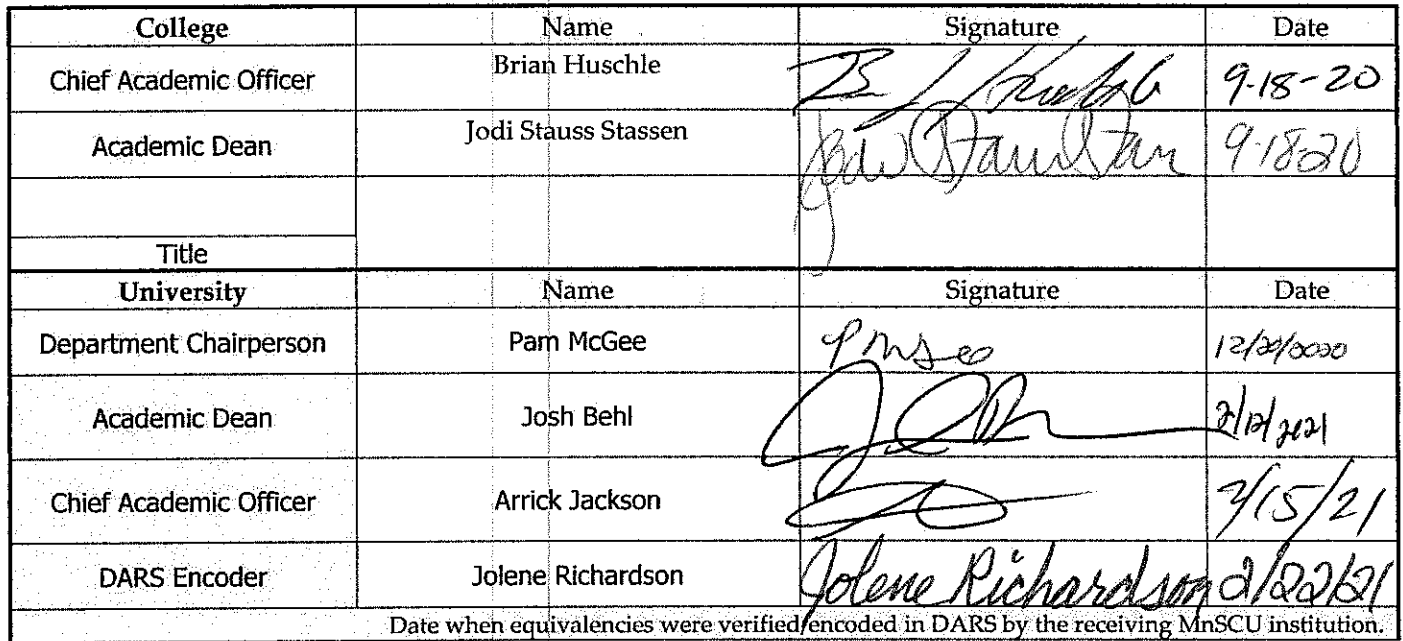 College Name Signature Date
Chief Academic Officer Brian Huschle 9-18-20
Academic Dean Jodi Stauss Stassen 9-18-20
Title
University Name Signature Date
Department Chairperson Pam McGee 12/20/2020
Academic Dean Josh Behl 2/12/2021
Chief Academic Officer Arrick Jackson 2/15/21
DARS Encoder Jolene Richardson Jolene Richardson 2/22/21
Date when equivalencies were verified/encoded in DARS by the receiving MnSCU institution.